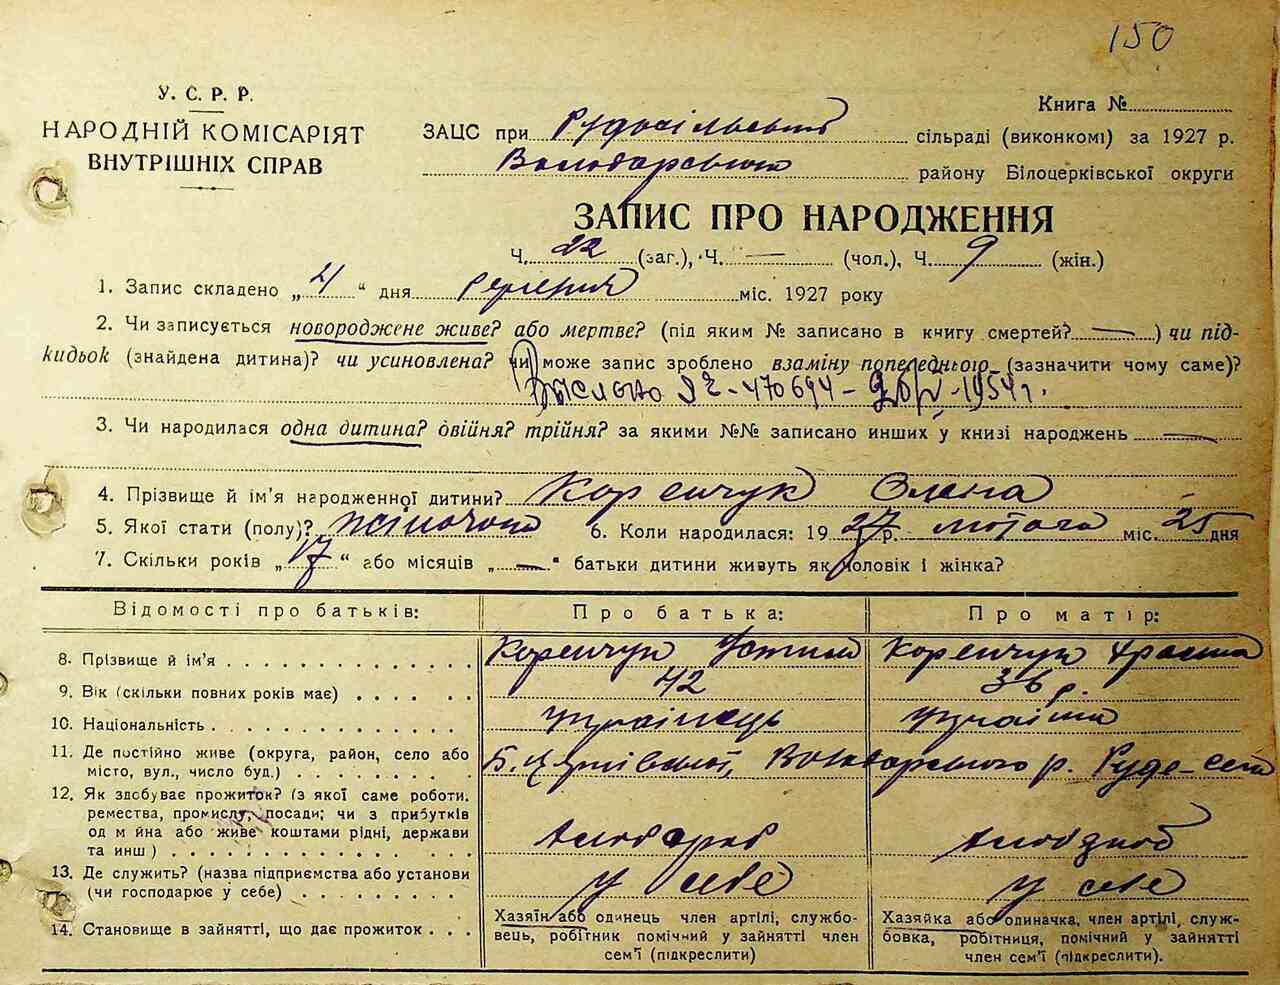 150
У. С. Р. Р.
НАРОДНІЙ КОМІСАРІЯТ
ВНУТРІШНІХ СПРАВ
Книга №
ЗАЦС при Рудосільській сільраді (виконкомі) за 1927 р.
Володарського району Білоцерківської округи
ЗАПИС ПРО НАРОДЖЕННЯ
Ч. 22 (заг.), Ч. — (чол.), Ч. 9 (жін.)
1. Запис складено „ 4 “ дня серпня міс. 1927 року
2. Чи записується новороджене живе? або мертве? (під яким № записано в книгу смертей? — ) чи під-
кидьок (знайдена дитина)? чи усиновлена? чи може запис зроблено взаміну попереднього (зазначити чому саме)?
470694 1954 г.
3. Чи народилася одна дитина? двійня? трійня? за якими №№ записано инших у книзі народжень —
4. Прізвище й ім'я народженної дитини? Коренчук Олена
5. Якої стати (полу)? жіночої 6. Коли народилася: 1927 р. лютого міс. 25 дня
7. Скільки років „ 17 “ або місяців „ — “ батьки дитини живуть як чоловік і жінка?
Відомості про батьків: Про батька: Про матір:
8. Прізвище й ім'я Коренчук Устим Коренчук
9. Вік (скільки повних років має) 42 36 р.
10. Національність українець українка
11. Де постійно живе (округа, район, село або
місто, вул., число буд.) Б. Церківської, Володарського р. Руде-село
12. Як здобуває прожиток? (з якої саме роботи,
ремества, промислу, посади; чи з прибутків
од м йна або живе коштами рідні, держави
та инш ) хлібороб
13. Де служить? (назва підприємства або установи
(чи господарює у себе) у себе у себе
14. Становище в зайнятті, що дає прожиток
Хазяїн або одинець член артілі, службо-
вець, робітник помічний у зайнятті член
сем'ї (підкреслити)
Хазяйка або одиначка, член артілі, служ-
бовка, робітниця, помічний у зайнятті
член сем'ї (підкреслити).